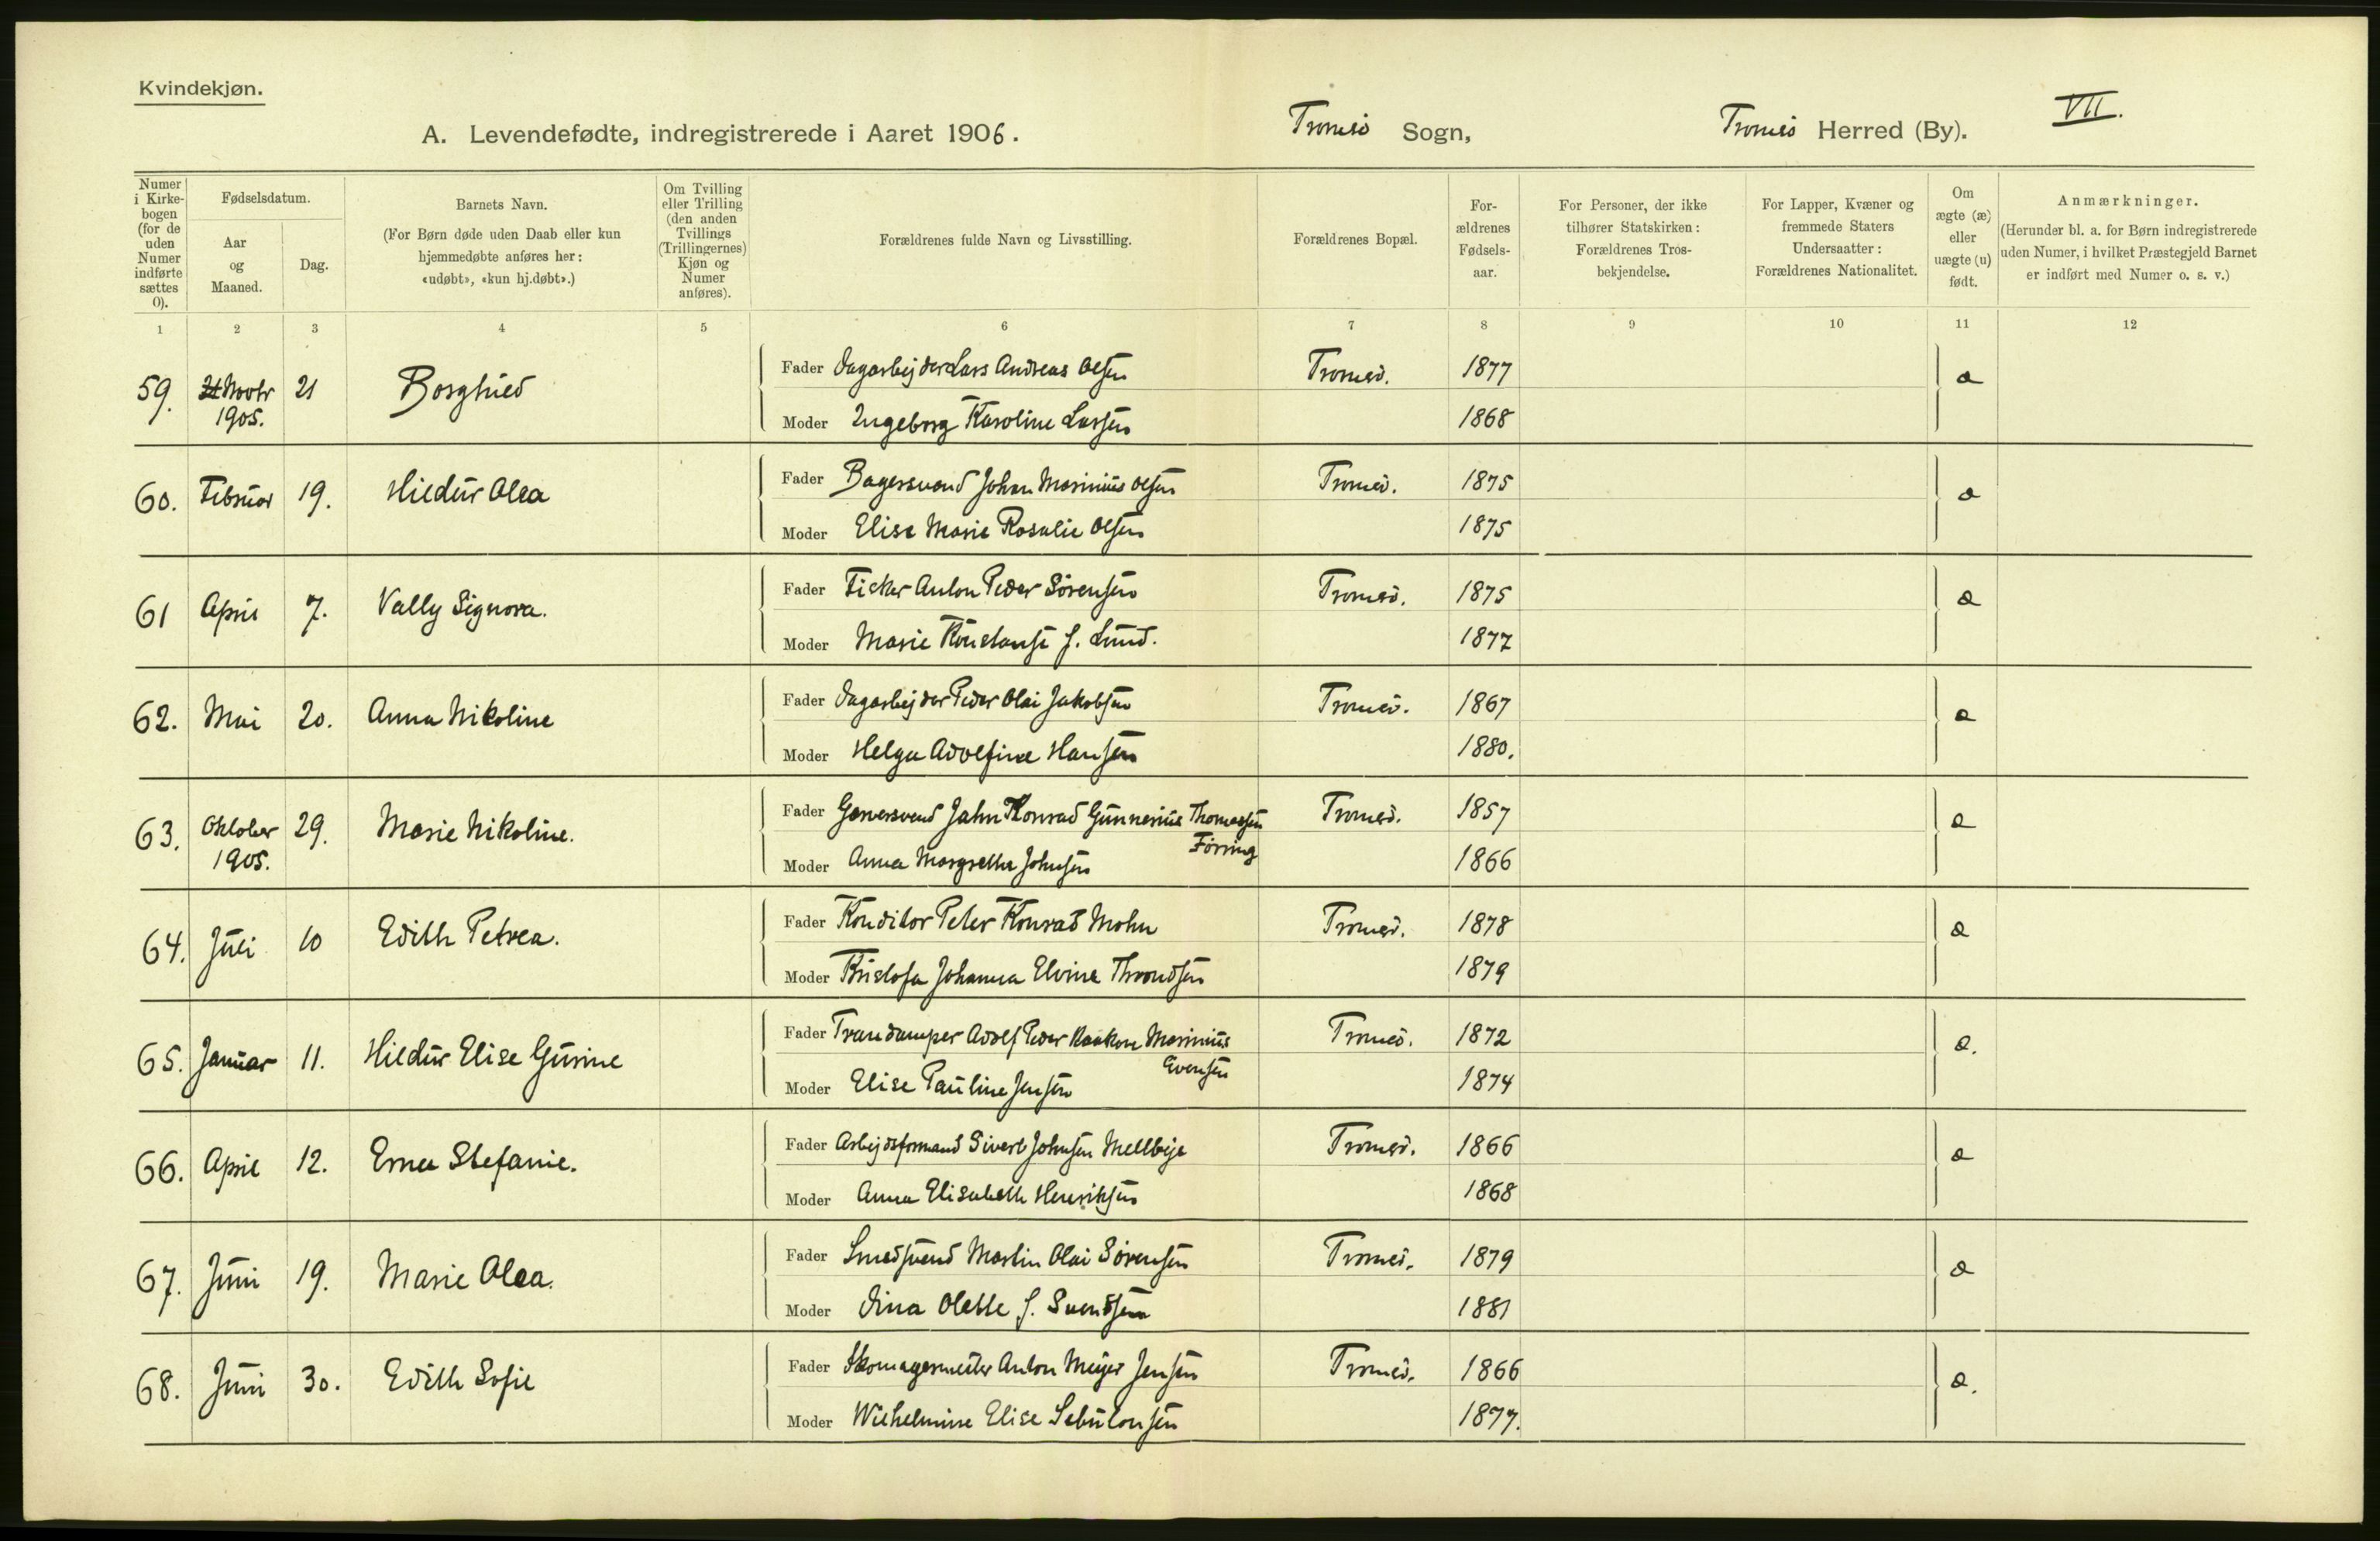 Kvindekjøn.
VII.
A. Levendefødte, indregistrerede i Aaret 1906. Tromsö Sogn, Tromsö Herred (By).
Numer i Kirkebogen (for de uden Numer indførte sættes 0).
Fødselsdatum.
Aar og Maaned.
Dag.
Barnets Navn.
(For Børn døde uden Daab eller kun hjemmedøbte anføres her: «udøbt», «kun hj.døbt».)
Om Tvilling eller Trilling (den anden Tvillings (Trillingernes) Kjøn og Numer anføres).
Forældrenes fulde Navn og Livsstilling.
Forældrenes Bopæl.
For-ældrenes Fødsels-aar.
For Personer, der ikke tilhører Statskirken: Forældrenes Tros-bekjendelse.
For Lapper, Kvæner og fremmede Staters Undersaatter: Forældrenes Nationalitet.
Om ægte (æ) eller uægte (u) født.
Anmærkninger.
(Herunder bl. a. for Børn indregistrerede uden Numer, i hvilket Præstegjeld Barnet er indført med Numer o. s. v.)
1 2 3 4 5 6 7 8 9 10 11 12
59. Novbr 1905. 21 Borghild Fader Dagarbejder Lars Andreas Olsen Tromsö. 1877 æ
Moder Ingeborg Karoline Larsen 1868
60. Februar 19. Hildur Olea Fader Bagersvend Johan Marinius Olsen Tromsö. 1875 æ
Moder Elise Marie Rosalie Olsen 1875
61 April 7. Vally Signora. Fader Fisker Anton Peder Sörensen Tromsö. 1875 æ
Moder Marie Konstanse f. Lund. 1877
62. Mai 20. Anna Nikoline Fader Dagarbejder Peder Olai Jakobsen Tromsö. 1867 æ
Moder Helga Adolfine Hansen 1880.
63. Oktober 1905. 29. Marie Nikoline. Fader Garversvend Jahn Konrad Gunnerius Thomassen Föring Tromsö. 1857 æ
Moder Anna Margrethe Johnsen 1866
64. Juli 10 Edith Petrea. Fader Konditor Peter Konrad Mohn Tromsö. 1878 æ
Moder Kristofa Johanna Elvine Throndsen 1879
65. Januar 11. Hildur Elise Gurine Fader Trandamper Adolf Peder Haakon Marinius Evensen Tromsö. 1872 æ.
Moder Elise Pauline Jensen 1874
66. April 12. Erna Stefanie. Fader Arbejdsformand Sivert Johnsen Mellbye Tromsö. 1866 æ
Moder Anna Elisabeth Henriksen 1868
67. Juni 19. Marie Olea. Fader Smedsvend Martin Olai Sörensen Tromsö. 1879 æ
Moder Dina Olette f. Svendsen 1881
68. Juni 30. Edith Sofie Fader Skomagermester Anton Meyer Jensen Tromsö. 1866 æ.
Moder Wilhelmine Elise Sebulonsen 1877.